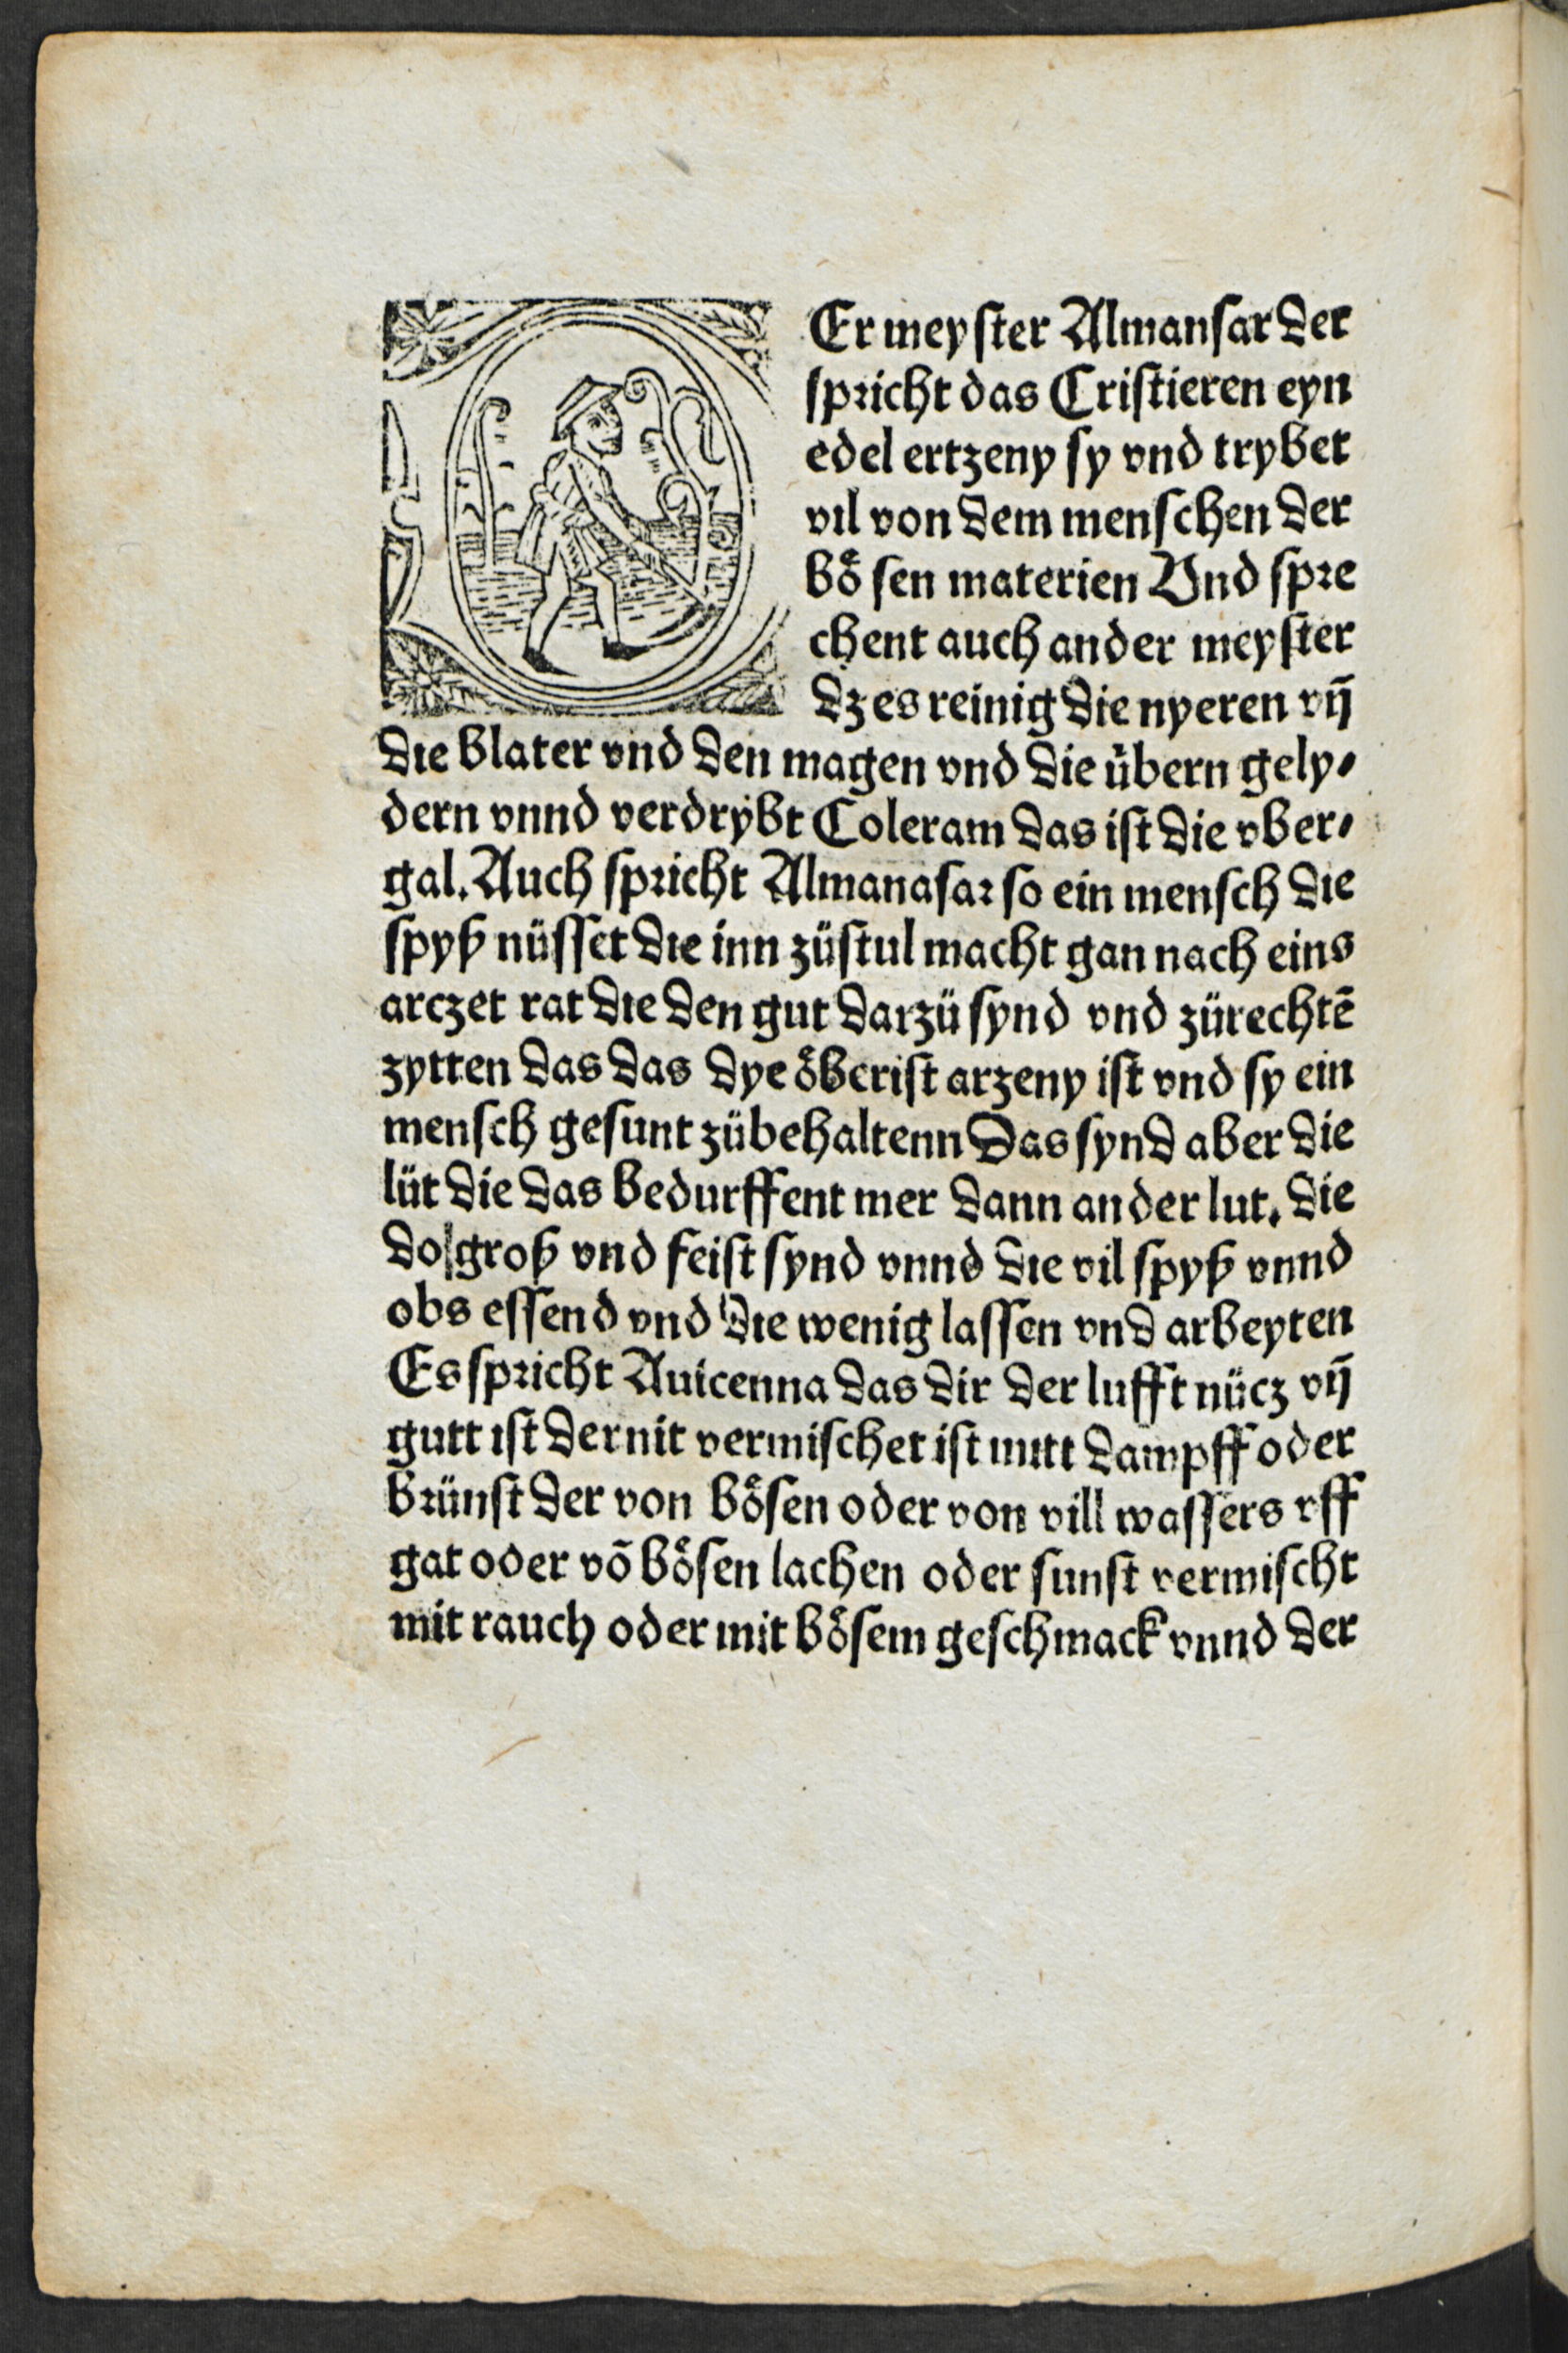 DEr meyster Almansar der
spricht das Cristieren eyn
edel ertzeny sy vnd trybet
vil von dem menschen der
boͤsen materien Vnd spre
chent auch ander meyster
dz es reinig die nyeren vn̄
die blater vnd den magen vnd die übern gely⸗
dern vnnd verdrybt Coleram das ist die vber⸗
gal. Auch spricht Almanasar so ein mensch die
spyß nüsset die inn züstul macht gan nach eins
arczet rat die den gut darzü synd vnd zürechtē
zytten das das dye oͤberist arzeny ist vnd sy ein
mensch gesunt zübehaltenn Das synd aber die
lüt die das bedurffent mer dann ander lut. die
do groß vnd feist synd vnnd die vil spyß vnnd
obs essend vnd die wenig lassen vnd arbeyten
Es spricht Auicenna das dir der lufft nücz vn̄
gutt ist der nit vermischet ist mitt dampff oder
brünst der von boͤsen oder von vill wassers vff
gat oder vō boͤsen lachen oder sunst vermischt
mit rauch oder mit boͤsem geschmack vnnd der